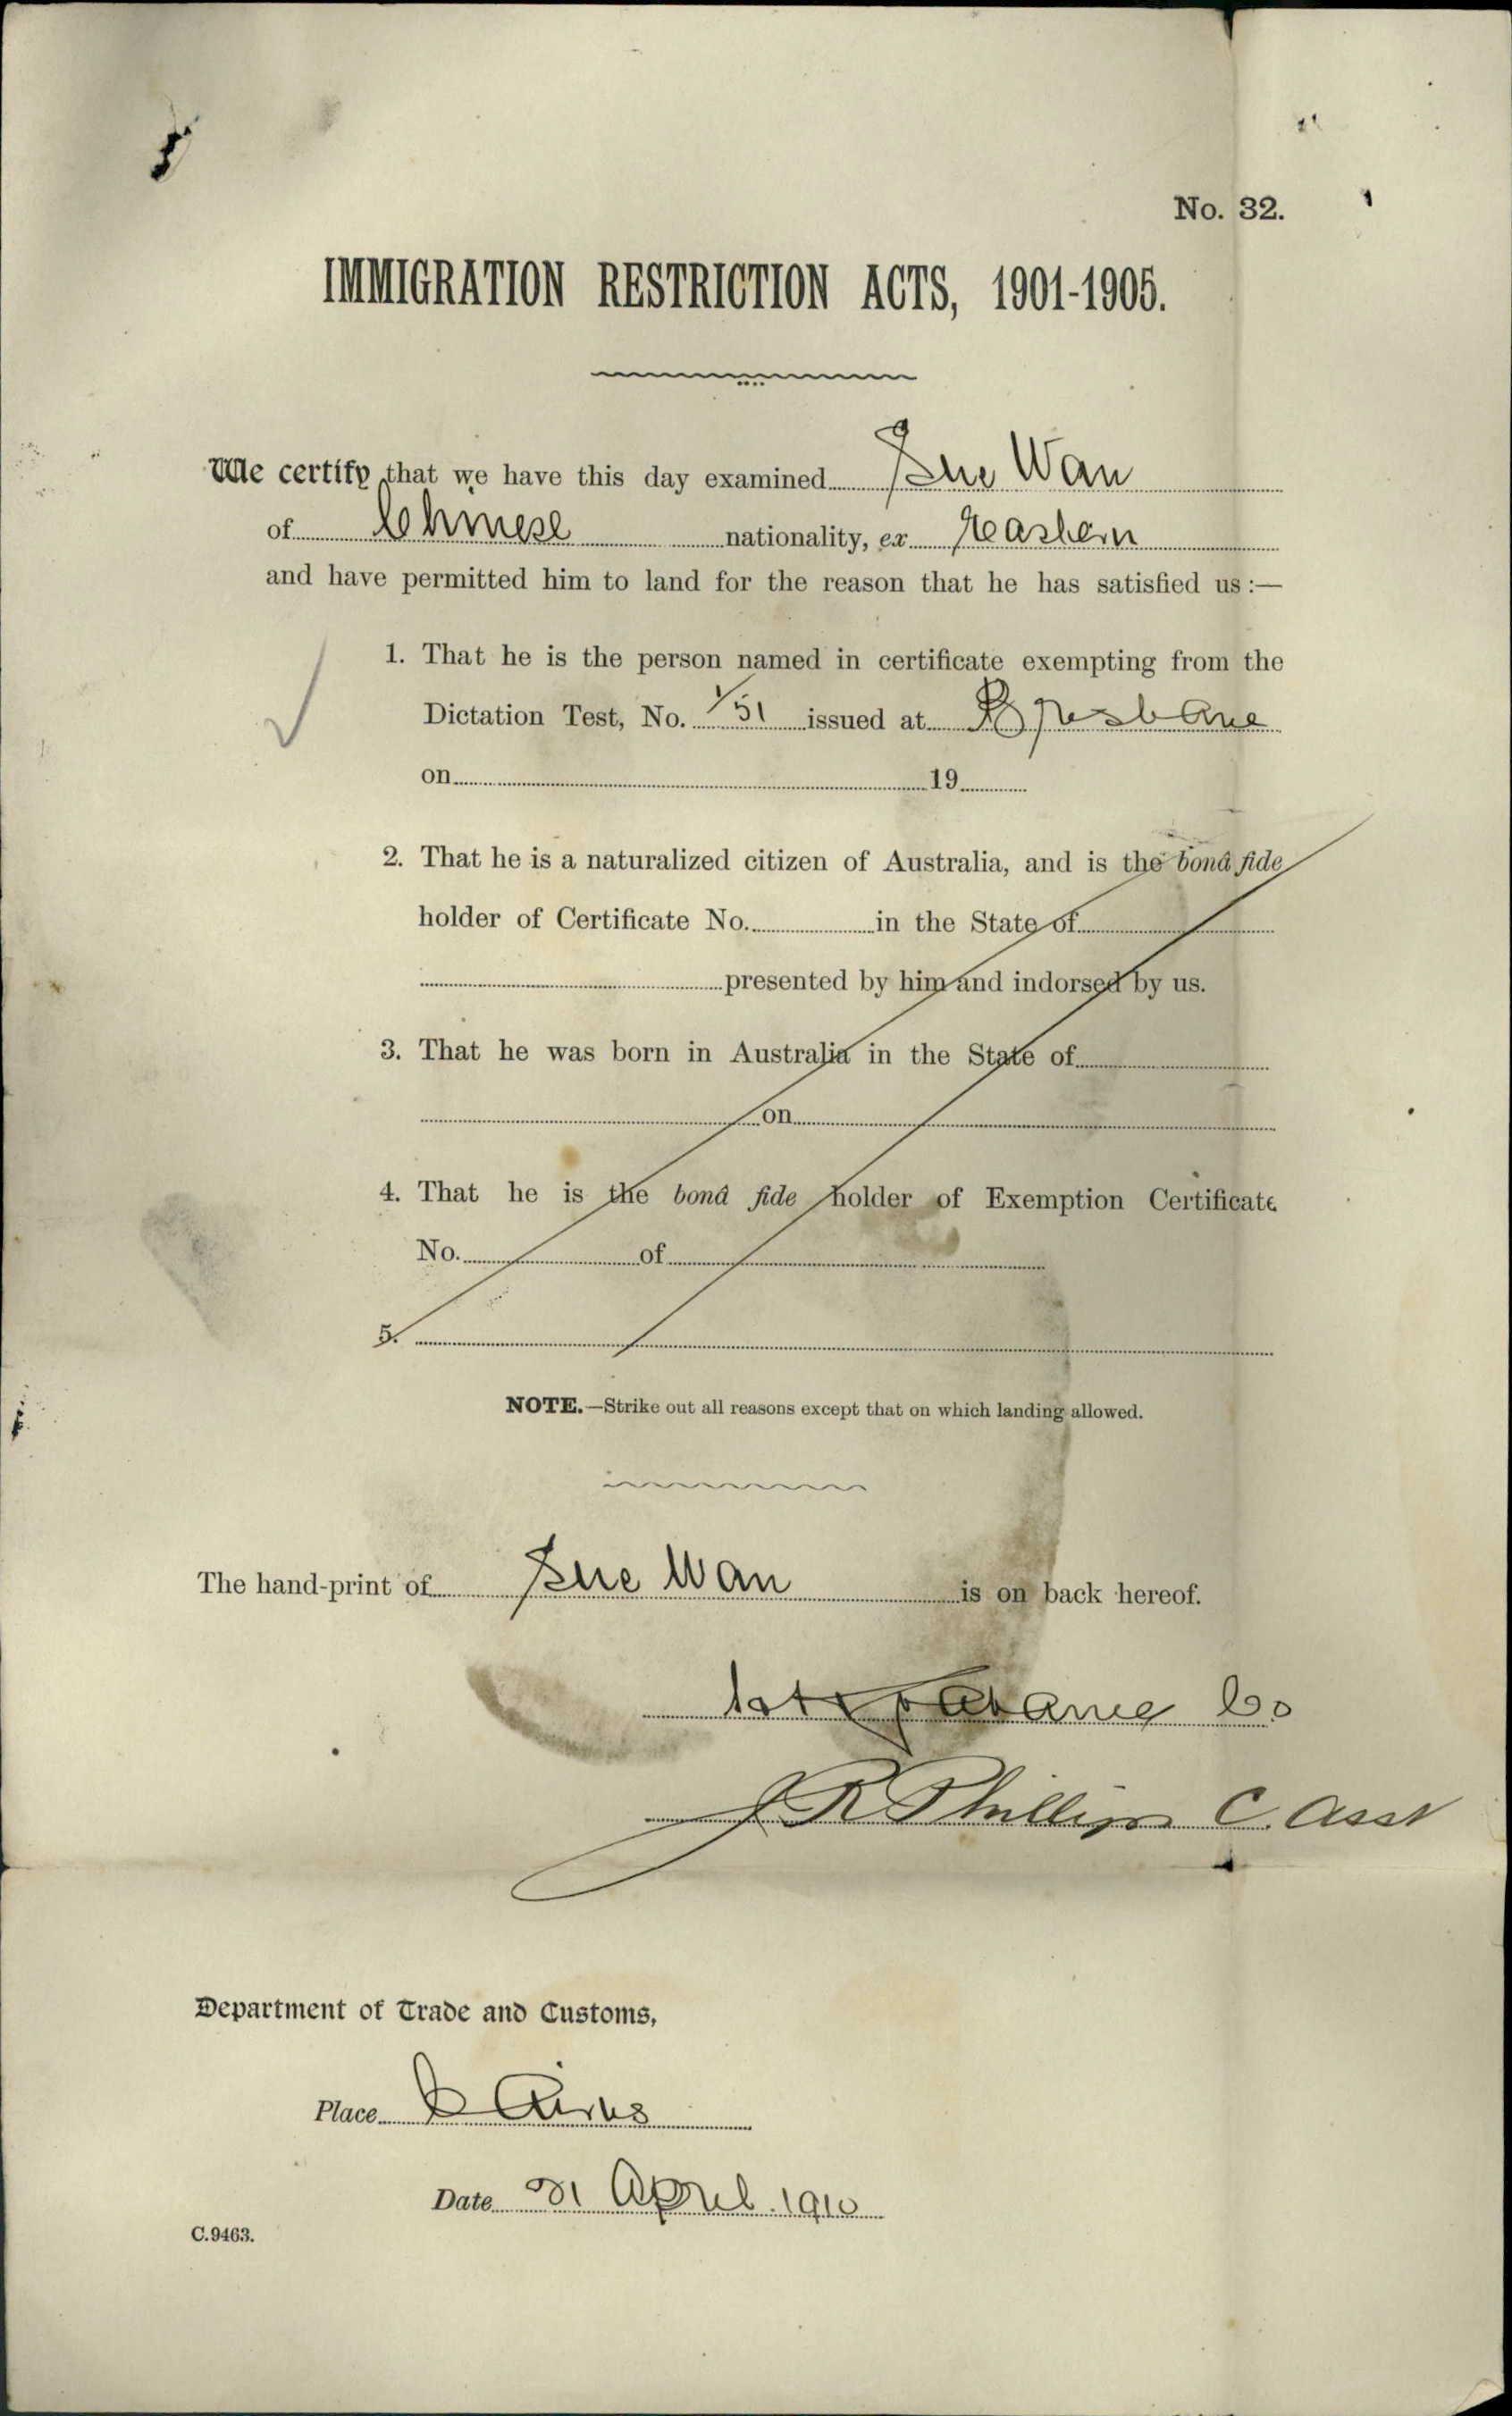 No. 32.
IMMIGRATION RESTRICTION ACTS, 1901-1905.
We certify that we have this day examined Sue Wan
of Chinese nationality, ex Eastern
and have permitted him to land for the reason that he has satisfied us :—
1. That he is the person named in certificate exempting from the
Dictation Test, No. 1/51 issued at Brisbane
on 19
2. That he is a naturalized citizen of Australia, and is the bonâ fide
holder of Certificate No. in the State of
presented by him and indorsed by us.
3. That he was born in Australia in the State of
on
4. That he is the bonâ fide holder of Exemption Certificate
No. of
5.
NOTE.—Strike out all reasons except that on which landing allowed.
The hand-print of Sue Wan is on back hereof.
J R Phillips C. Asst
Department of Trade and Customs,
Place Cairns
Date 21 April 1910
C.9463.